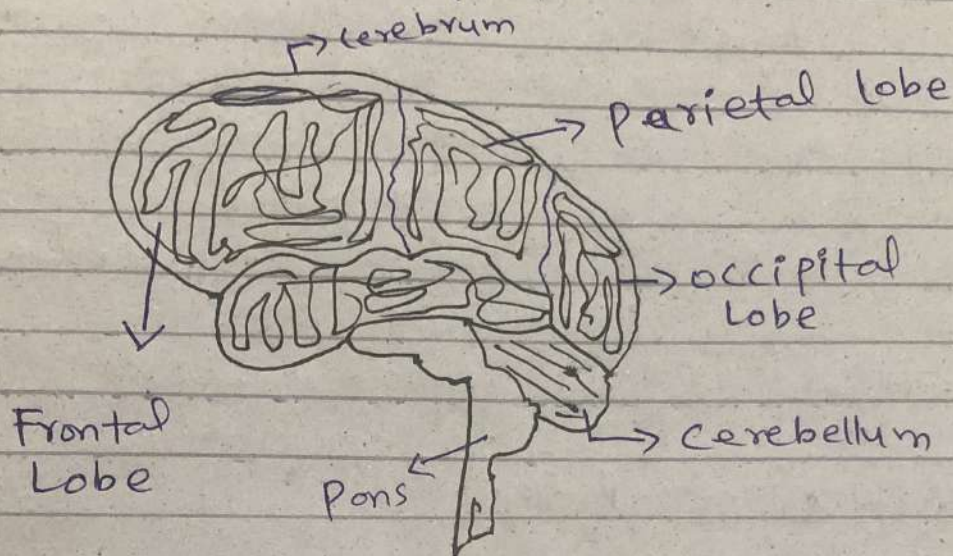 cerebrum
parietal lobe
occipital
Lobe
Frontal
Lobe
cerebellum
Pons